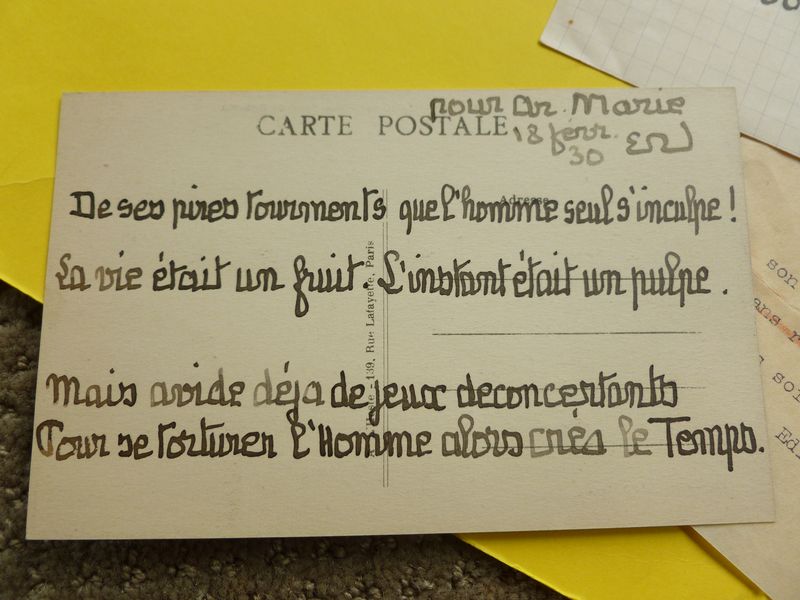 pour An. Marie
CARTE POSTALE
18 févr.
30
Adresse
De ses pires tourments que l'homme seul s'inculpe !
La vie était un fruit. L'instant était un pulpe .
139, Rue Lafayette, Paris
Mais avide déja de jeux deconcertants
Pour se torturer l'Homme alors créa le Temps.
son
ans
son
Ed